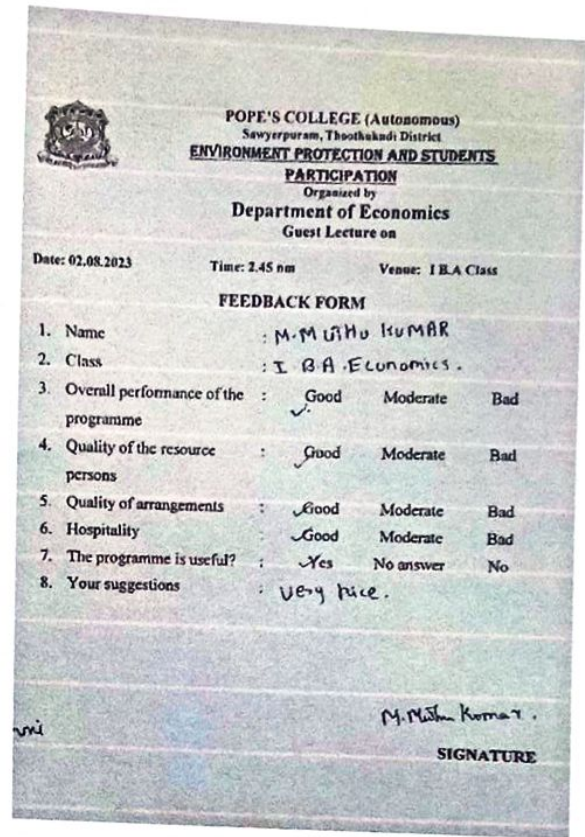 POPE'S COLLEGE (Autonomous)
Sawyerpuram, Thoothukudi District
ENVIRONMENT PROTECTION AND STUDENTS
PARTICIPATION
Organized by
Department of Economics
Guest Lecture on
Date: 02.08.2023 Time: 2.45 pm Venue: I B.A Class
FEEDBACK FORM
1. Name : M. MUTHU KUMAR
2. Class : I B.A. Economics.
3. Overall performance of the : Good Moderate Bad
programme
4. Quality of the resource : Good Moderate Bad
persons
5. Quality of arrangements : Good Moderate Bad
6. Hospitality : Good Moderate Bad
7. The programme is useful? : Yes No answer No
8. Your suggestions : very nice.
M. Muthu Kumar.
SIGNATURE